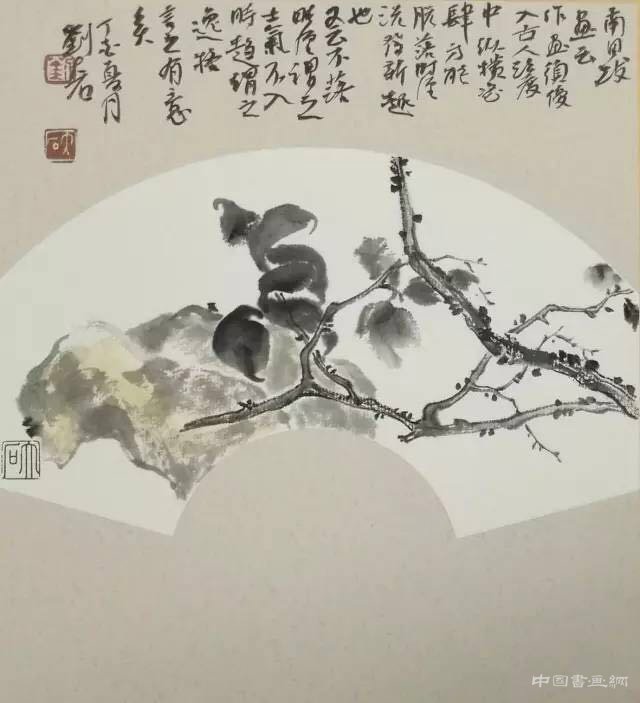 南田跋
畫云
作畫須優
入古人法度
中縱橫恣
肆方能
脱落時徑
洗發新趣
也
又云不落
畦徑謂之
士氣不入
時趨謂之
逸格
言之有意
矣
丁酉夏月
劉
中国書画網